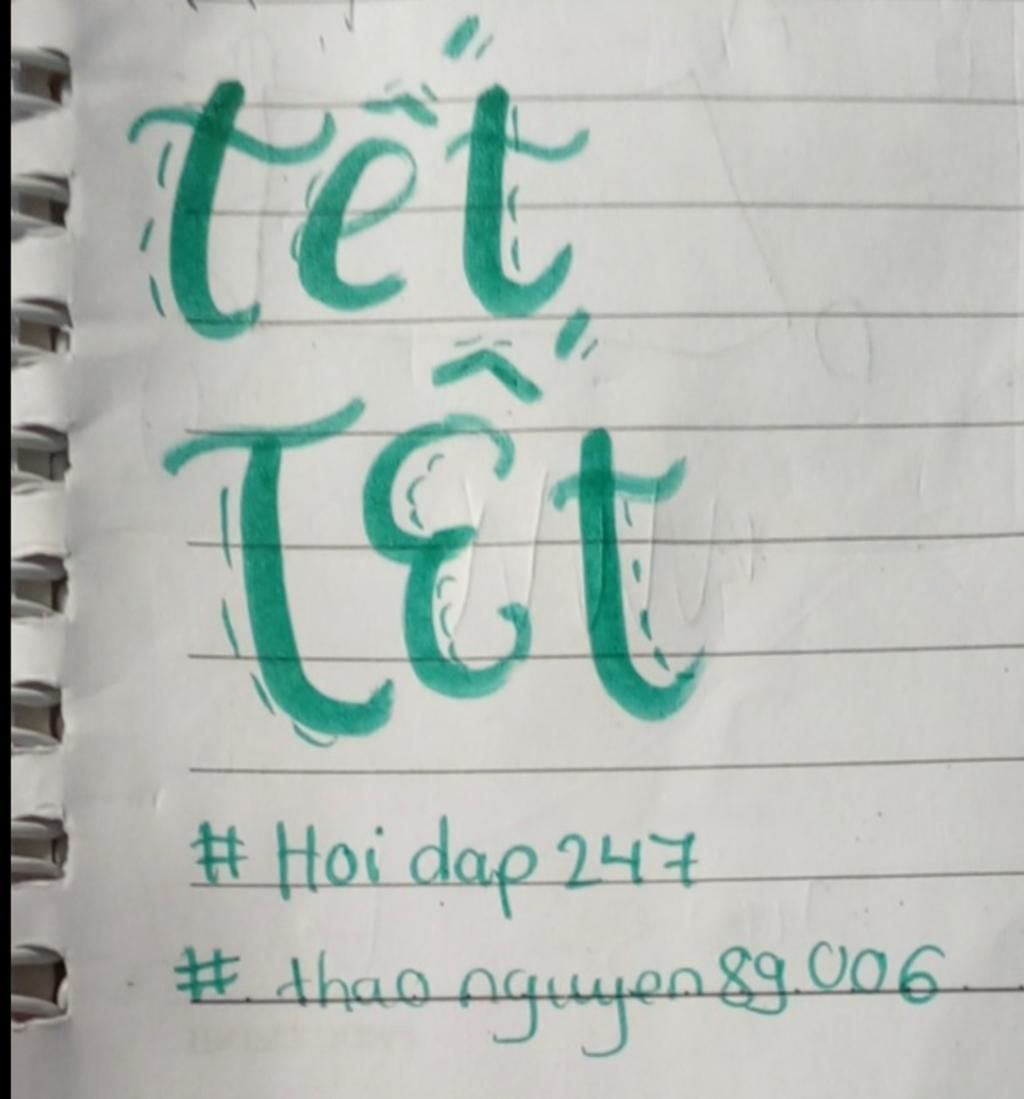 tết
TẾt
# Hoi dap 247
# thao nguyen 89.006